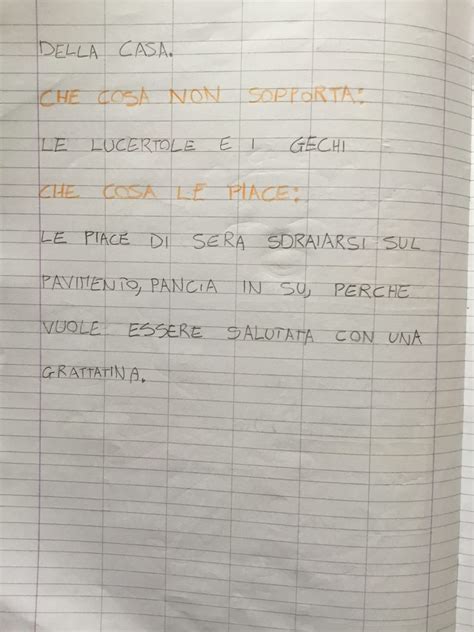 DELLA CASA.
CHE COSA NON SOPPORTA:
LE LUCERTOLE E I GECHI
CHE COSA LE PIACE:
LE PIACE DI SERA SDRAIARSI SUL
PAVIMENTO, PANCIA IN SU, PERCHE
VUOLE ESSERE SALUTATA CON UNA
GRATTATINA.